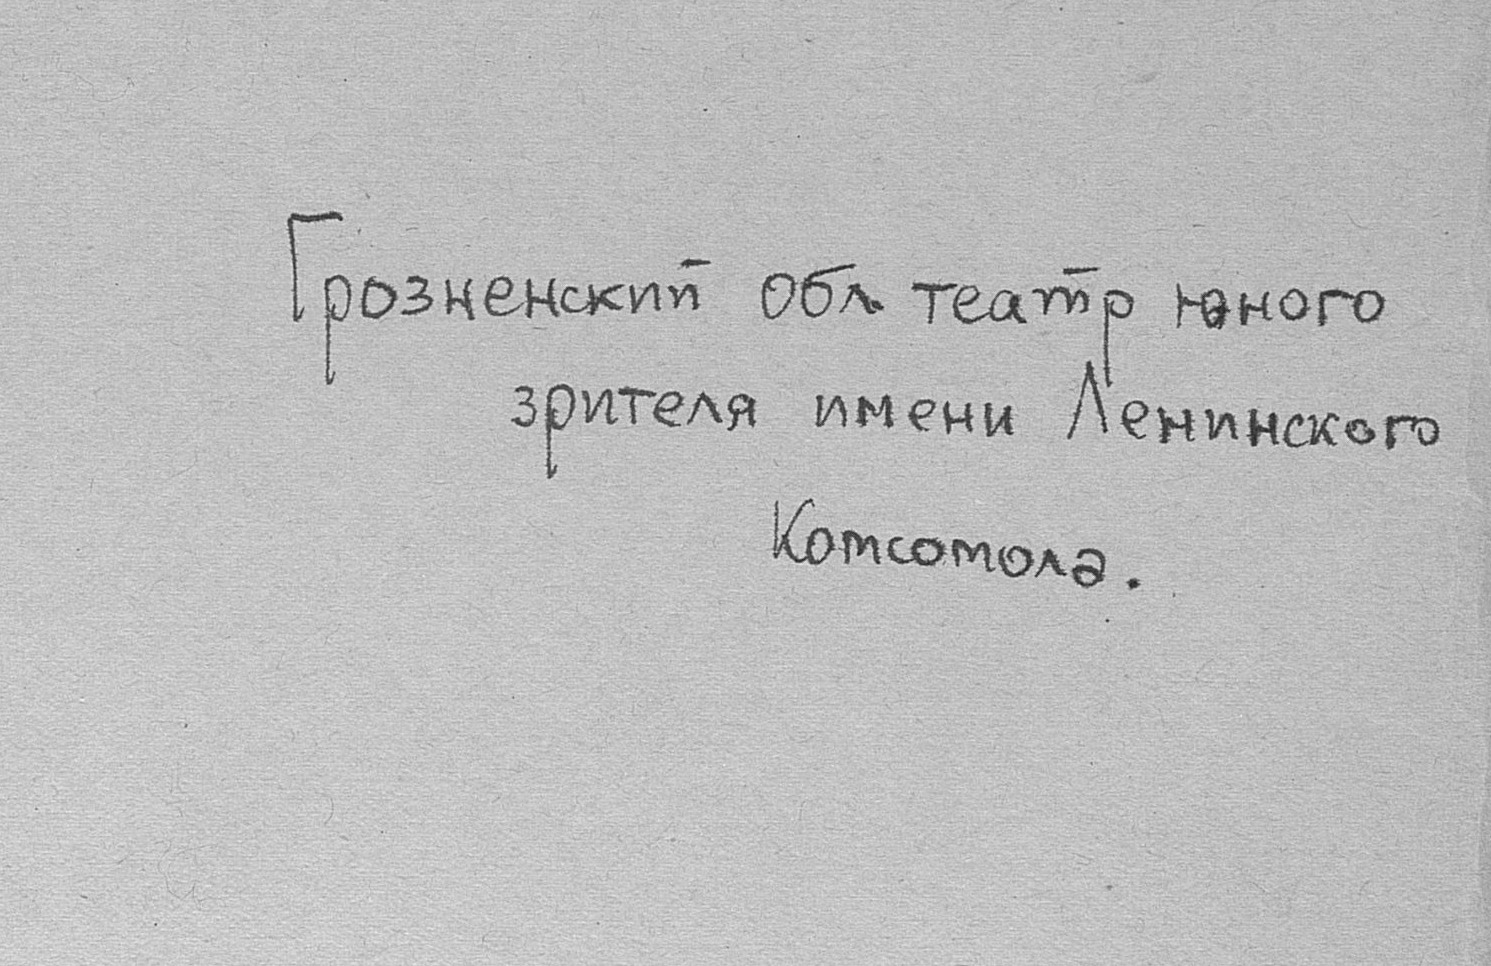 Грозненский обл театр юного
зрителя имени Ленинского
Комсомола.